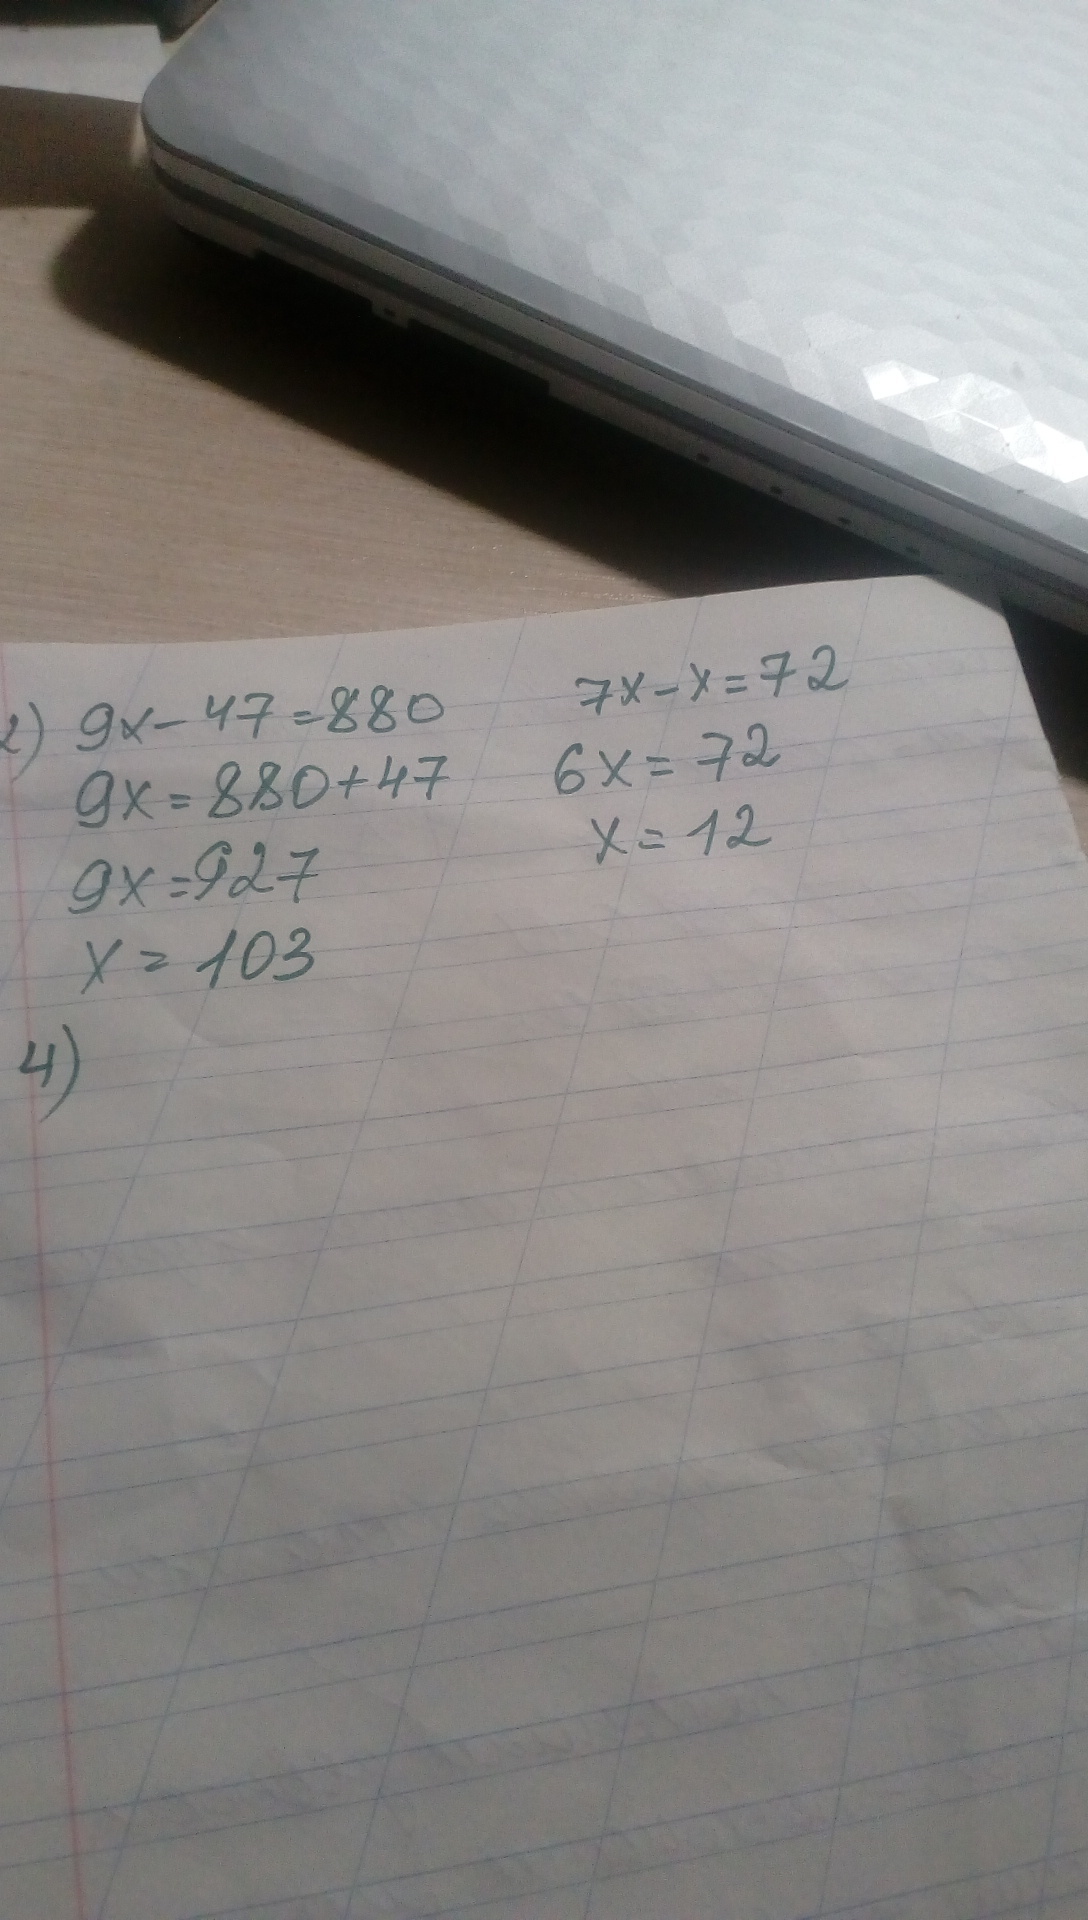 2) 9x - 47 = 880
9x = 880 + 47
9x = 927
x = 103
7x - x = 72
6x = 72
x = 12
4)